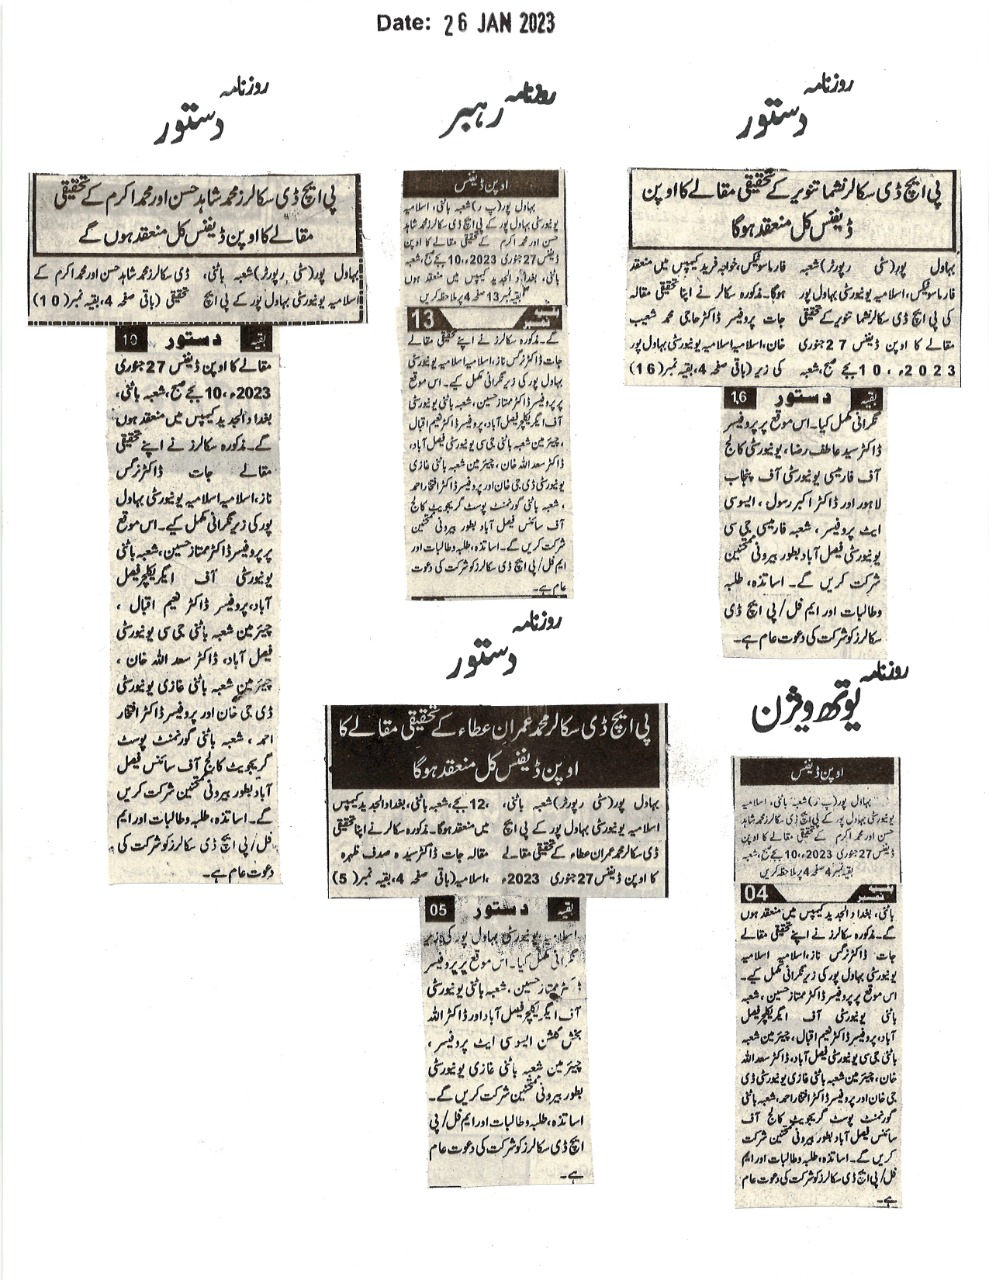 Date: 26 JAN 2023
روزنامہ
دستور
پی ایچ ڈی سکالرز محمد شاہد حسن اور محمد اکرم کے تحقیقی
مقالے کا اوپن ڈیفنس کل منعقد ہوں گے
بہاول پور (سٹی رپورٹر) شعبہ باٹنی،
اسلامیہ یونیورسٹی بہاول پور کے پی ایچ
ڈی سکالرز محمد شاہد حسن اور محمد اکرم کے
تحقیقی (باقی صفحہ 4، بقیہ نمبر (10)
بقیہ دستور 10
مقالے کا اوپن ڈیفنس 27 جنوری
2023ء، 10 بجے صبح، شعبہ باٹنی،
بغداد الجدید کیمپس میں منعقد ہوں
گے۔ مذکورہ سکالرز نے اپنے تحقیقی
مقالے جات ڈاکٹر نرگس
ناز، اسلامیہ اسلامیہ یونیورسٹی بہاول
پور کی زیر نگرانی مکمل کیے۔ اس موقع
پر پروفیسر ڈاکٹر ممتاز حسین، شعبہ باٹنی
یونیورسٹی آف ایگریکلچر فیصل
آباد، پروفیسر ڈاکٹر نعیم اقبال ،
چیئرمین شعبہ باٹنی جی سی یونیورسٹی
فیصل آباد، ڈاکٹر سعد اللہ خان ،
چیئرمین شعبہ باٹنی غازی یونیورسٹی
ڈی جی خان اور پروفیسر ڈاکٹر افتخار
احمد ، شعبہ باٹنی گورنمنٹ پوسٹ
گریجویٹ کالج آف سائنس فیصل
آباد بطور بیرونی ممتحنین شرکت کریں
گے۔ اساتذہ، طلبہ وطالبات اور ایم
فل/ پی ایچ ڈی سکالرز کو شرکت کی
دعوت عام ہے۔
روزنامہ
رہبر
اوپن ڈیفنس
بہاول پور (پ ر) شعبہ باٹنی، اسلامیہ
یونیورسٹی بہاول پور کے پی ایچ ڈی سکالرز محمد شاہد
حسن اور محمد اکرم کے تحقیقی مقالے کا اوپن
ڈیفنس 27 جنوری 2023ء، 10 بجے صبح، شعبہ
باٹنی، بغداد الجدید کیمپس میں منعقد ہوں
بقیہ نمبر 13 صفحہ 4 پر ملاحظہ کریں
بقیہ نمبر 13
گے۔ مذکورہ سکالرز نے اپنے تحقیقی مقالے
جات ڈاکٹر نرگس ناز، اسلامیہ اسلامیہ یونیورسٹی
بہاول پور کی زیر نگرانی مکمل کیے۔ اس موقع
پر پروفیسر ڈاکٹر ممتاز حسین، شعبہ باٹنی یونیورسٹی
آف ایگریکلچر فیصل آباد، پروفیسر ڈاکٹر نعیم اقبال
، چیئرمین شعبہ باٹنی جی سی یونیورسٹی فیصل آباد،
ڈاکٹر سعد اللہ خان، چیئرمین شعبہ باٹنی غازی
یونیورسٹی ڈی جی خان اور پروفیسر ڈاکٹر افتخار احمد
، شعبہ باٹنی گورنمنٹ پوسٹ گریجویٹ کالج
آف سائنس فیصل آباد بطور بیرونی ممتحنین
شرکت کریں گے۔ اساتذہ، طلبہ وطالبات اور
ایم فل/ پی ایچ ڈی سکالرز کو شرکت کی دعوت
عام ہے۔
روزنامہ
دستور
پی ایچ ڈی سکالر نشما تنویر کے تحقیقی مقالے کا اوپن
ڈیفنس کل منعقد ہوگا
بہاول پور (سٹی رپورٹر) شعبہ
فارماسوٹیکس، اسلامیہ یونیورسٹی بہاول پور
کی پی ایچ ڈی سکالر نشما تنویر کے تحقیقی
مقالے کا اوپن ڈیفنس 27 جنوری
2023ء، 10 بجے صبح، شعبہ
فارماسوٹیکس، خواجہ فرید کیمپس میں منعقد
ہوگا۔ مذکورہ سکالر نے اپنا تحقیقی مقالہ
جات پروفیسر ڈاکٹر حاجی محمد شعیب
خان، اسلامیہ اسلامیہ یونیورسٹی بہاول پور
کی زیر (باقی صفحہ 4، بقیہ نمبر (16)
بقیہ دستور 16
نگرانی مکمل کیا۔ اس موقع پر پروفیسر
ڈاکٹر سید عاطف رضا، یونیورسٹی کالج
آف فارمیسی یونیورسٹی آف پنجاب
لاہور اور ڈاکٹر اکبر رسول، ایسوسی
ایٹ پروفیسر، شعبہ فارمیسی جی سی
یونیورسٹی فیصل آباد بطور بیرونی ممتحنین
شرکت کریں گے۔ اساتذہ، طلبہ
وطالبات اور ایم فل/ پی ایچ ڈی
سکالرز کو شرکت کی دعوت عام ہے۔
روزنامہ
دستور
پی ایچ ڈی سکالر محمد عمران عطاء کے تحقیقی مقالے کا
اوپن ڈیفنس کل منعقد ہوگا
بہاول پور (سٹی رپورٹر) شعبہ باٹنی،
اسلامیہ یونیورسٹی بہاول پور کے پی ایچ
ڈی سکالر محمد عمران عطاء کے تحقیقی مقالے
کا اوپن ڈیفنس 27 جنوری 2023ء
، 12 بجے، شعبہ باٹنی، بغداد الجدید کیمپس
میں منعقد ہوگا۔ مذکورہ سکالر نے اپنا تحقیقی
مقالہ جات ڈاکٹر سیدہ صدف ظہرہ
، اسلامیہ (باقی صفحہ 4، بقیہ نمبر (5)
بقیہ دستور 05
اسلامیہ یونیورسٹی بہاول پور کی زیر
نگرانی مکمل کیا۔ اس موقع پر پروفیسر
ڈاکٹر ممتاز حسین، شعبہ باٹنی یونیورسٹی
آف ایگریکلچر فیصل آباد اور ڈاکٹر اللہ
بخش گلشن ایسوسی ایٹ پروفیسر ،
چیئرمین شعبہ باٹنی غازی یونیورسٹی
بطور بیرونی ممتحنین شرکت کریں گے۔
اساتذہ، طلبہ وطالبات اور ایم فل/ پی
ایچ ڈی سکالرز کو شرکت کی دعوت عام
ہے۔
روزنامہ
یوتھ ویژن
اوپن ڈیفنس
بہاول پور (پ ر) شعبہ باٹنی، اسلامیہ
یونیورسٹی بہاول پور کے پی ایچ ڈی سکالرز محمد شاہد
حسن اور محمد اکرم کے تحقیقی مقالے کا اوپن
ڈیفنس 27 جنوری 2023ء، 10 بجے صبح، شعبہ
بقیہ نمبر 4 صفحہ 4 پر ملاحظہ کریں
بقیہ نمبر 04
باٹنی، بغداد الجدید کیمپس میں منعقد ہوں
گے۔ مذکورہ سکالرز نے اپنے تحقیقی مقالے
جات ڈاکٹر نرگس ناز، اسلامیہ اسلامیہ
یونیورسٹی بہاول پور کی زیر نگرانی مکمل کیے۔
اس موقع پر پروفیسر ڈاکٹر ممتاز حسین، شعبہ
باٹنی یونیورسٹی آف ایگریکلچر فیصل
آباد، پروفیسر ڈاکٹر نعیم اقبال، چیئرمین شعبہ
باٹنی جی سی یونیورسٹی فیصل آباد، ڈاکٹر سعد اللہ
خان، چیئرمین شعبہ باٹنی غازی یونیورسٹی ڈی
جی خان اور پروفیسر ڈاکٹر افتخار احمد، شعبہ باٹنی
گورنمنٹ پوسٹ گریجویٹ کالج آف
سائنس فیصل آباد بطور بیرونی ممتحنین شرکت
کریں گے۔ اساتذہ، طلبہ وطالبات اور ایم
فل/ پی ایچ ڈی سکالرز کو شرکت کی دعوت عام
ہے۔